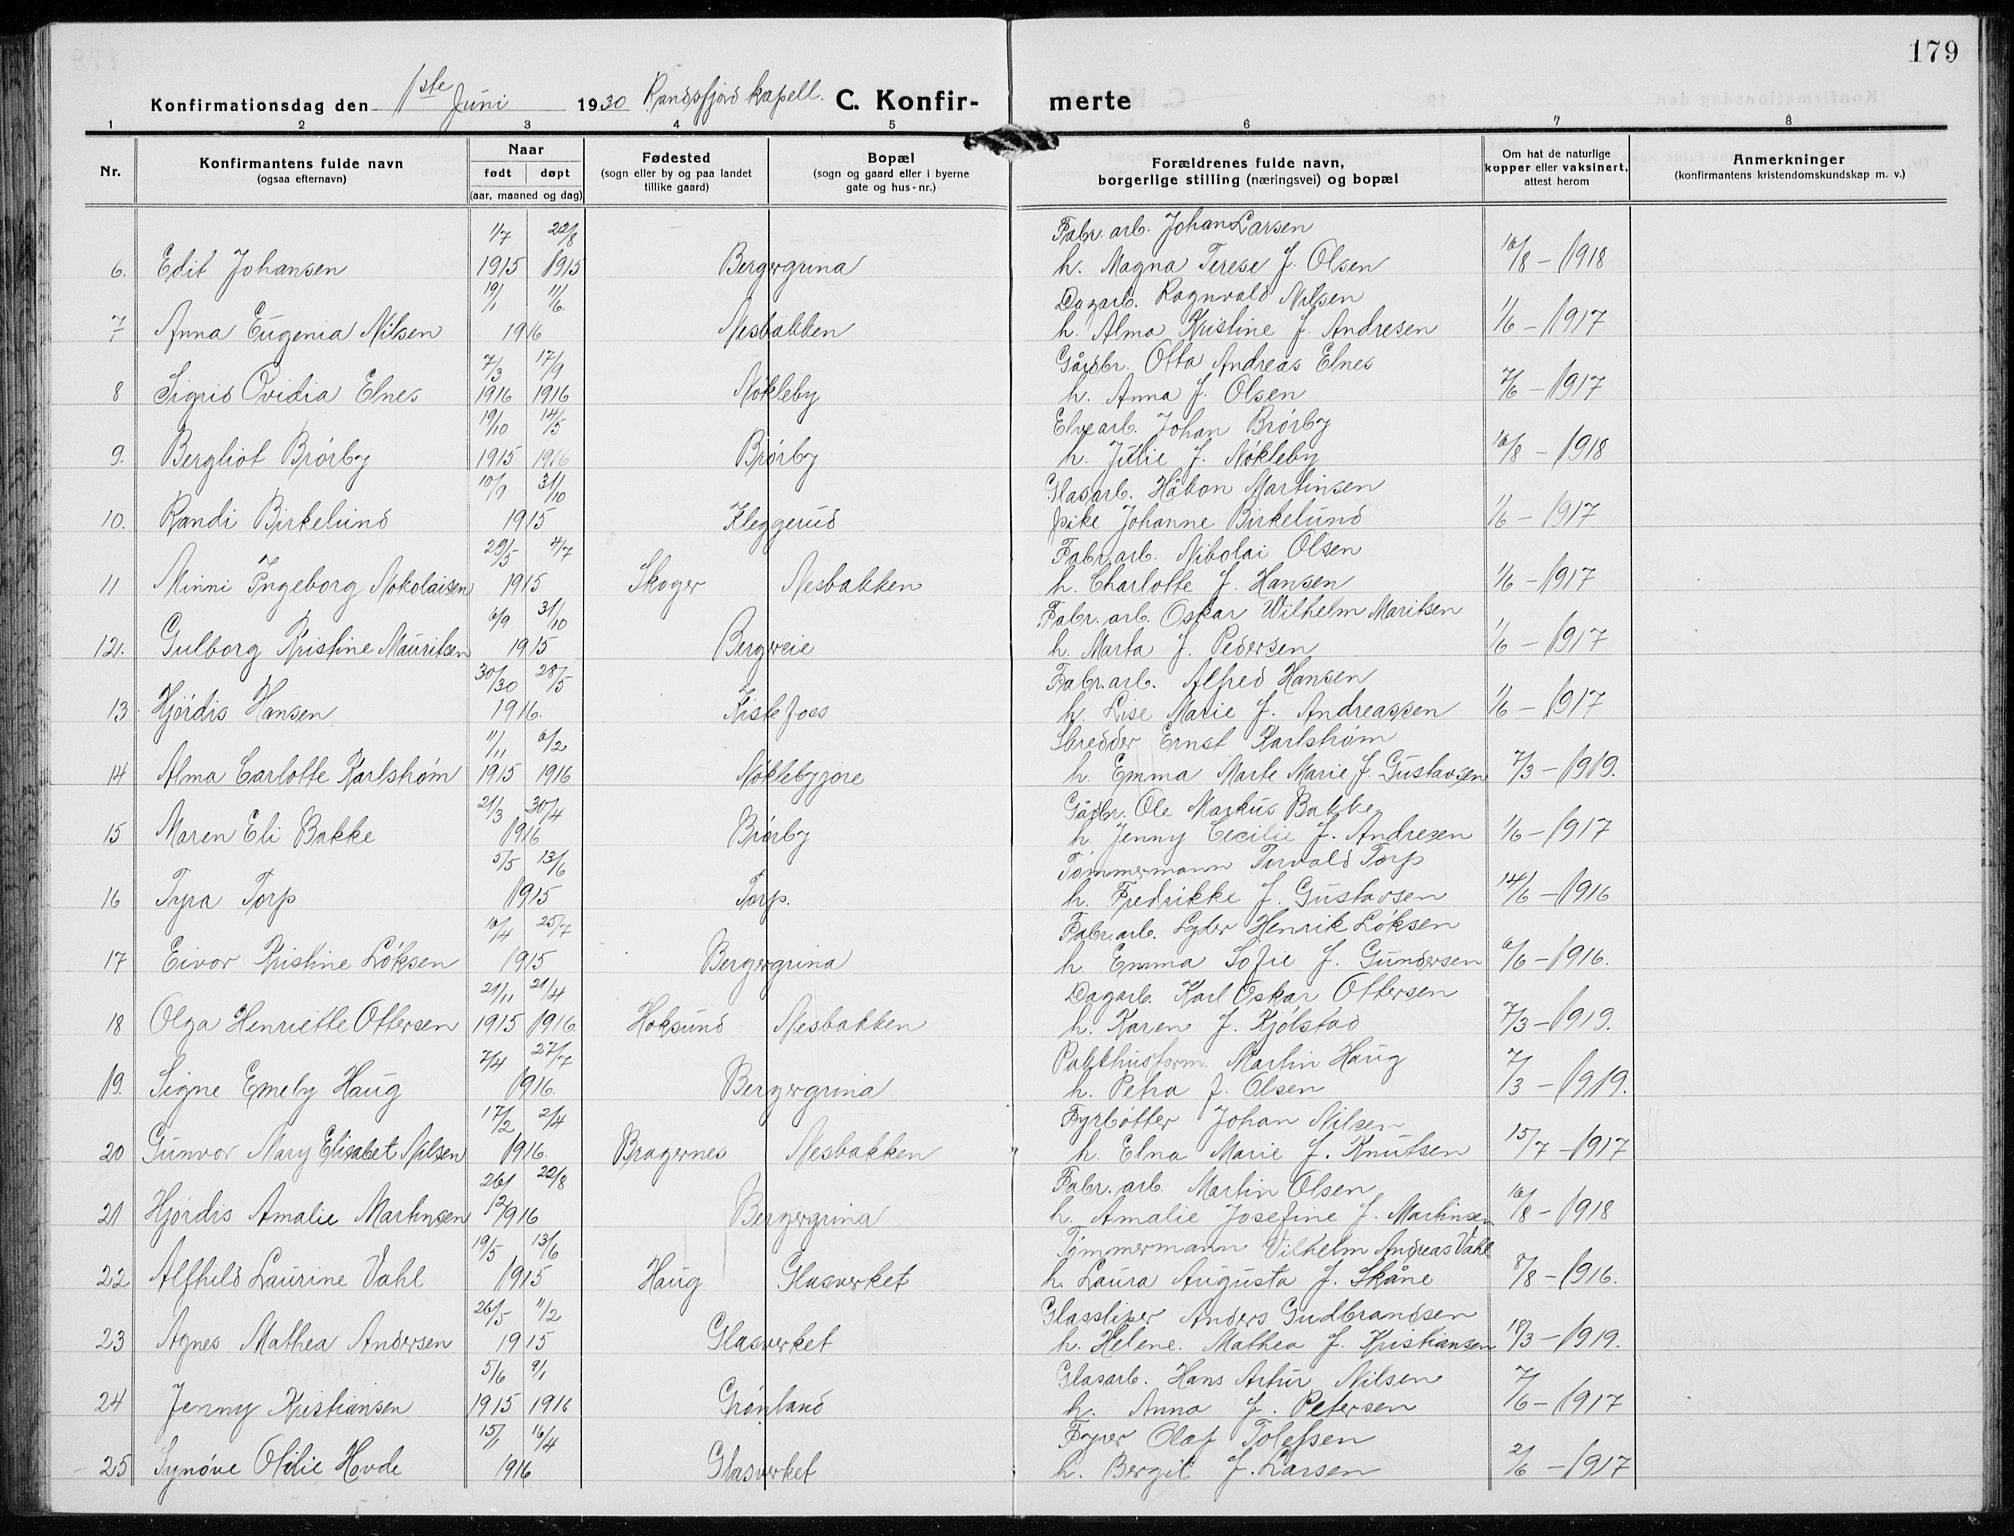 179
Konfirmationsdag den 1ste Juni 1930 Randsfjord kapell. C. Konfir- merte
1 2 3 4 5 6 7 8
Nr. Konfirmantens fulde navn (ogsaa efternavn) Naar født døpt (aar, maaned og dag) Fødested (sogn eller by og paa landet tillike gaard) Bopæl (sogn og gaard eller i byerne gate og hus-nr.) Forældrenes fulde navn, borgerlige stilling (næringsvei) og bopæl Om hat de naturlige kopper eller vaksinert, attest herom Anmerkninger (konfirmantens kristendomskundskap m. v.)
1/7 22/8 Fabr. arb. Johan Larsen
6. Edit Johansen 1915 1915 Bergergrina h. Magna Terese f. Olsen 16/8 – 1918
19/1 11/6. Dagarb. Ragnvald Nilsen
7 Anna Eugenia Nilsen 1916 Nesbakken h. Alma Kristine f. Andresen 1/6 – 1917
7/3 17/9 Gårdbr. Otto Andreas Elnes
8 Sigrid Ovidia Elnes 1916 1916 Nøkleby h. Anna f. Olsen 7/6 – 1917
19/10 14/5 Elvearb. Johan Brørby
9. Bergliot Brørby 1915 1916 Brørby h. Julie f. Nøkleby 16/8 – 1918
10/9 31/10 Glasarb. Håkon Martinsen
10. Randi Birkelund 1915 Kleggerud pike Johanne Birkelund 1/6 – 1917
29/5 4/7 Fabr. arb. Nikolai Olsen
11 Minni Ingeborg Nokolaisen 1915 Skoger Nesbakken h. Charlotte f. Hansen 1/6 – 1917
6/9 31/10 Fabr. arb. Oskar Wilhelm Maritsen
12. Gulborg Kristine Mauritsen 1915 Bergereie h. Marta f. Pedersen 1/6 – 1917
30/30 28/5 Fabr. arb. Alfred Hansen
13 Hjørdis Hansen 1916. Kistefoss h. Lise Marie f. Andreassen 1/6 – 1917
11/11 6/2 Skredder Ernst Karlstrøm
14 Alma Carlotte Karlstrøm 1915 1916 Nøklebyjore h. Emma Marte Marie f. Gustavsen 7/3 – 1919.
21/3 30/4 Gårdbr. Ole Markus Bakke
15 Maren Eli Bakke 1916 Brørby h. Jenny Cecilie f. Andresen 1/6 – 1917
5/5 13/6 Tømmermann Torvald Torp
16 Tyra Torp 1915 Torp. h. Fredrikke f. Gustavsen 14/6 – 1916
16/4 25/7 Fabr. arb. Lyder Henrik Løksen
17 Eivor Kristine Løksen 1915 Bergergrina h Emma Sofie f. Gundersen 6/6 – 1916.
21/11 21/4 Dagarb. Karl Oskar Ottersen
18 Olga Henriette Ottersen 1915 1916 Hoksund Nesbakken h. Karen f. Kjølstad 7/3 – 1919.
7/4 27/7 Pakkhusform. Martin Haug
19. Signe Emely Haug 1916. Bergergrina h. Petra f. Olsen 7/3 – 1919.
17/2 2/4 Fyrbøtter Johan Nilsen
20 Gunvor Mary Elisabet Nilsen 1916. Bragernes Nesbakken h. Elna Marie f. Knutsen 15/7 – 1917
26/ 22/8 Fabr. arb. Martin Olsen
21 Hjørdis Amalie Martinsen 12 1916 Bergergrina h. Amalie Josefine f. Martinsen 16/8 – 1918
19/5 13/6 Tømmermann Vilhelm Andreas Vahl
22 Alfhild Laurine Vahl 1915 Haug Glasverket h. Laura Augusta f. Skåne 8/8 – 1916.
26/5 11/2 Glassliper Anders Gudbrandsen
23 Agnes Mathea Andersen 1915 Glasverket h. Helene. Mathea f. Kristiansen 18/3 – 1919.
5/6 9/1 Glasarb. Hans Artur Nilsen
24 Jenny Kristiansen 1915 1916 Grønland h. Anna f. Petersen 7/6 – 1917
15/1 16/4 Fyrer Olaf Tolefsen
25 Synøve Otilie Hovde 1916 Glasverket h. Bergit f. Larsen 2/6 – 1917